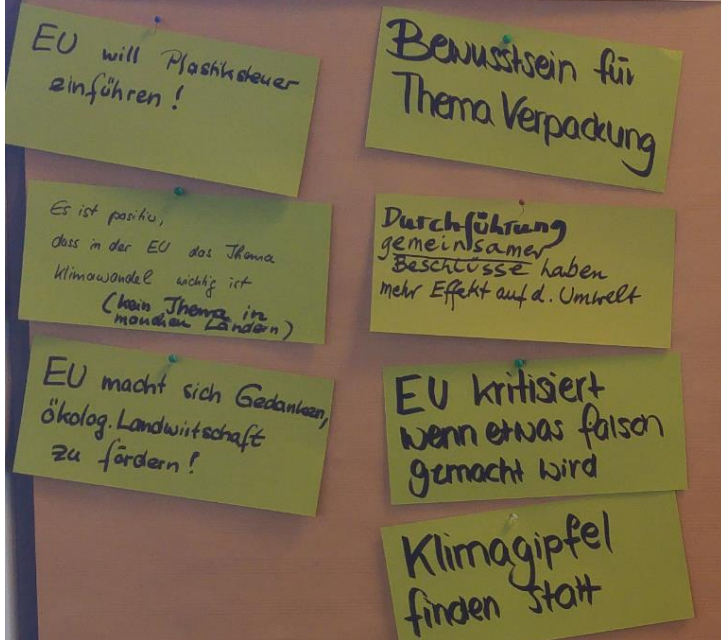 EU will Plastiksteuer
einführen!
Es ist positiv,
dass in der EU das Thema
Klimawandel wichtig ist
(kein Thema in
manchen Ländern)
EU macht sich Gedanken,
ökolog. Landwirtschaft
zu fördern!
Bewusstsein für
Thema Verpackung
Durchführung
gemeinsamer
Beschlüsse haben
mehr Effekt auf d. Umwelt
EU kritisiert
wenn etwas falsch
gemacht wird
Klimagipfel
finden statt